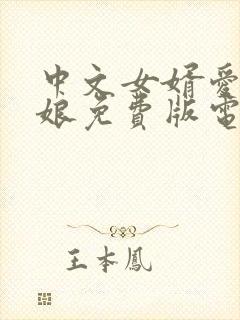 中文女婿爱
娘免费版电
王本凤